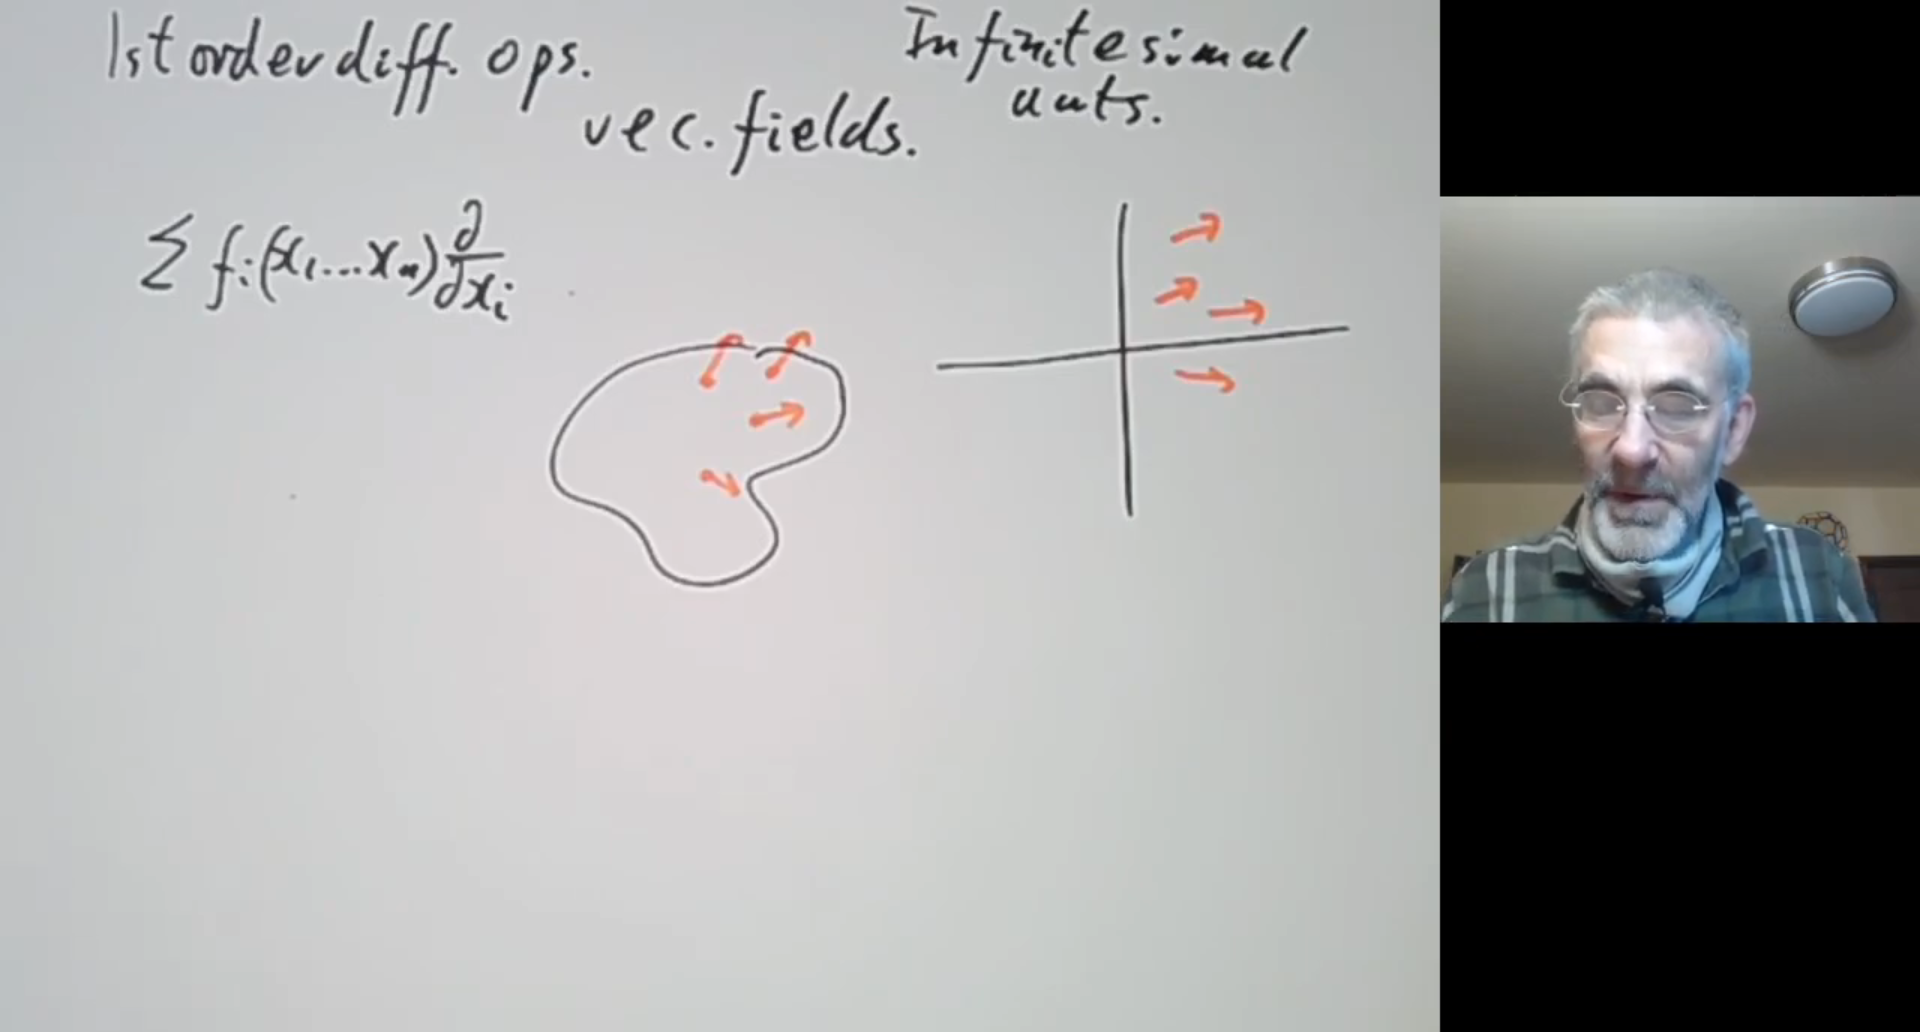 1st order diff. ops.
vec. fields.
Infinitesimal
auts.
∑ fᵢ(x₁...xₙ) ∂/∂xᵢ